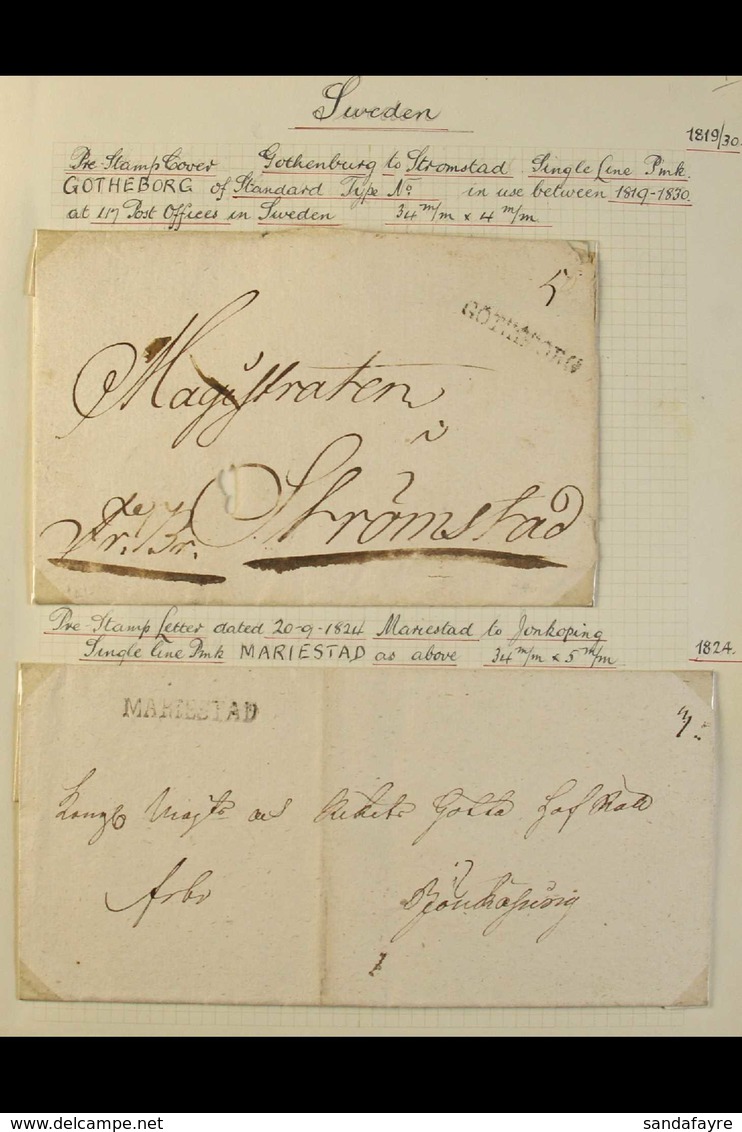 Sweden
1819/30.
Pre-Stamp Cover Gothenburg to Stromstad Single Line Pmk.
GOTHEBORG of Standard Type No. in use between 1819-1830.
at 117 Post Offices in Sweden 34 m/m x 4 m/m
5
GÖTHEBORG
Magistraten
i
Strömstad
Fr. Br.
Pre-Stamp Letter dated 20-9-1824 Mariestad to Jonkoping
Single line Pmk MARIESTAD as above 34 m/m x 5 m/m
1824.
MARIESTAD
Kongl Maijts och Rikets Götha Hof Rätt
i
Jönköping
delcampe.net
sandafayre